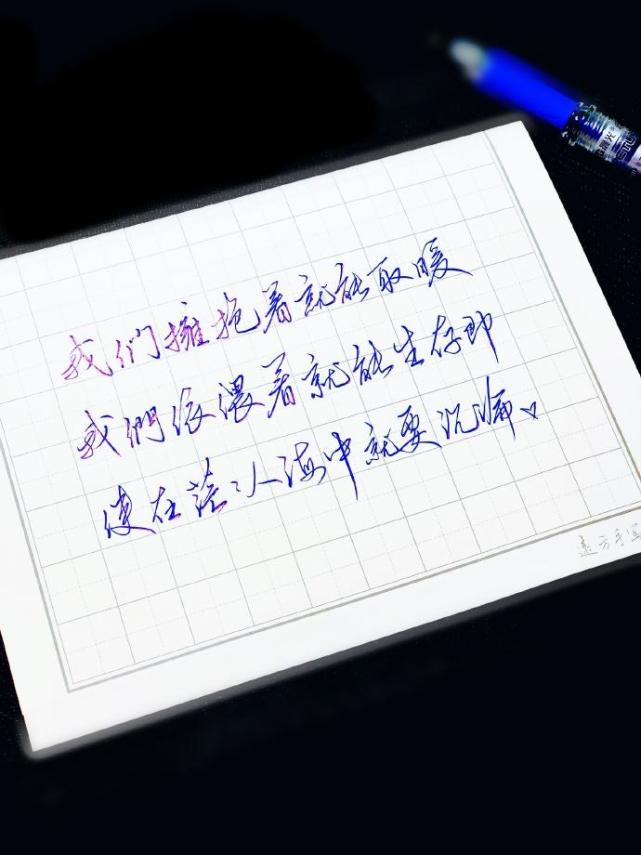 我們擁抱着就能取暖
我們依偎着就能生存即
使在茫々人海中就要沉淪。
遠方手写